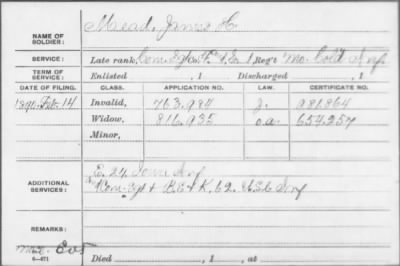 NAME OF SOLDIER: Mead, James H.
SERVICE: Late rank, Com. Sgt Co. F. & S. 1 Reg't Mo. Cold Inf
TERM OF SERVICE: Enlisted , 1 Discharged , 1
DATE OF FILING. CLASS. APPLICATION NO. LAW. CERTIFICATE NO.
1890 Feb. 14 Invalid, 763.984 J. 981864
Widow, 816.935 o.a. 654.257
Minor,
ADDITIONAL SERVICES: E. 24 Iowa Inf
Com. Sgt & B. E & K, 62 U.S.C. Inf
REMARKS:
6—671 Died , 1 , at